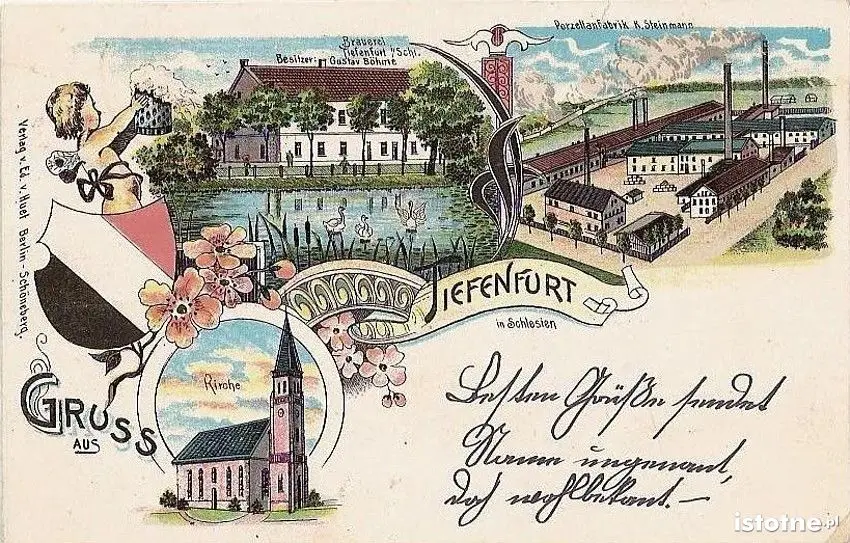 Porzellanfabrik K. Steinmann
Brauerei
Tiefenfurt i/Schl.
Besitzer: Gustav Böhme
Verlag v. Ed. v. Huet Berlin-Schöneberg.
TIEFENFURT
in Schlesien
Kirche
GRUSS
AUS
Besten Grüße sendet
Name ungenant,
doch wohlbekant.-
istotne.pl